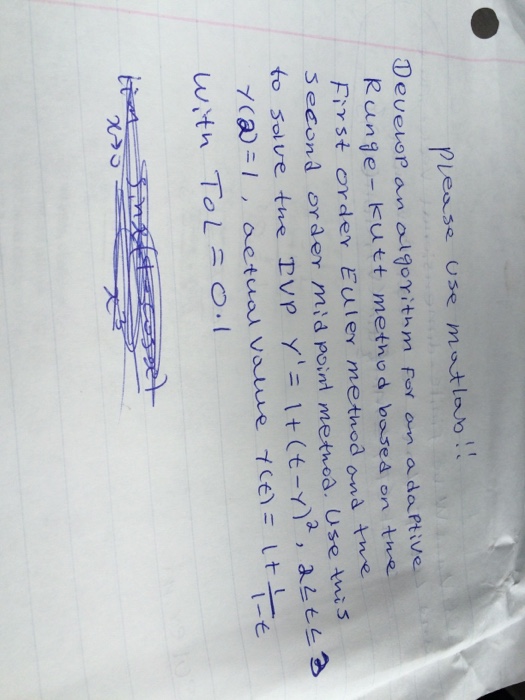 Please use matlab!!
Develop an algorithm for an adaptive
Runge-Kutt method based on the
First order Euler method and the
second order midpoint method. Use this
to solve the IVP Y' = 1+(t-Y)², 2≤t≤3
Y(2)=1, actual value Y(t) = 1+ 1/1-t
With TOL = 0.1
lim
x→0
x²